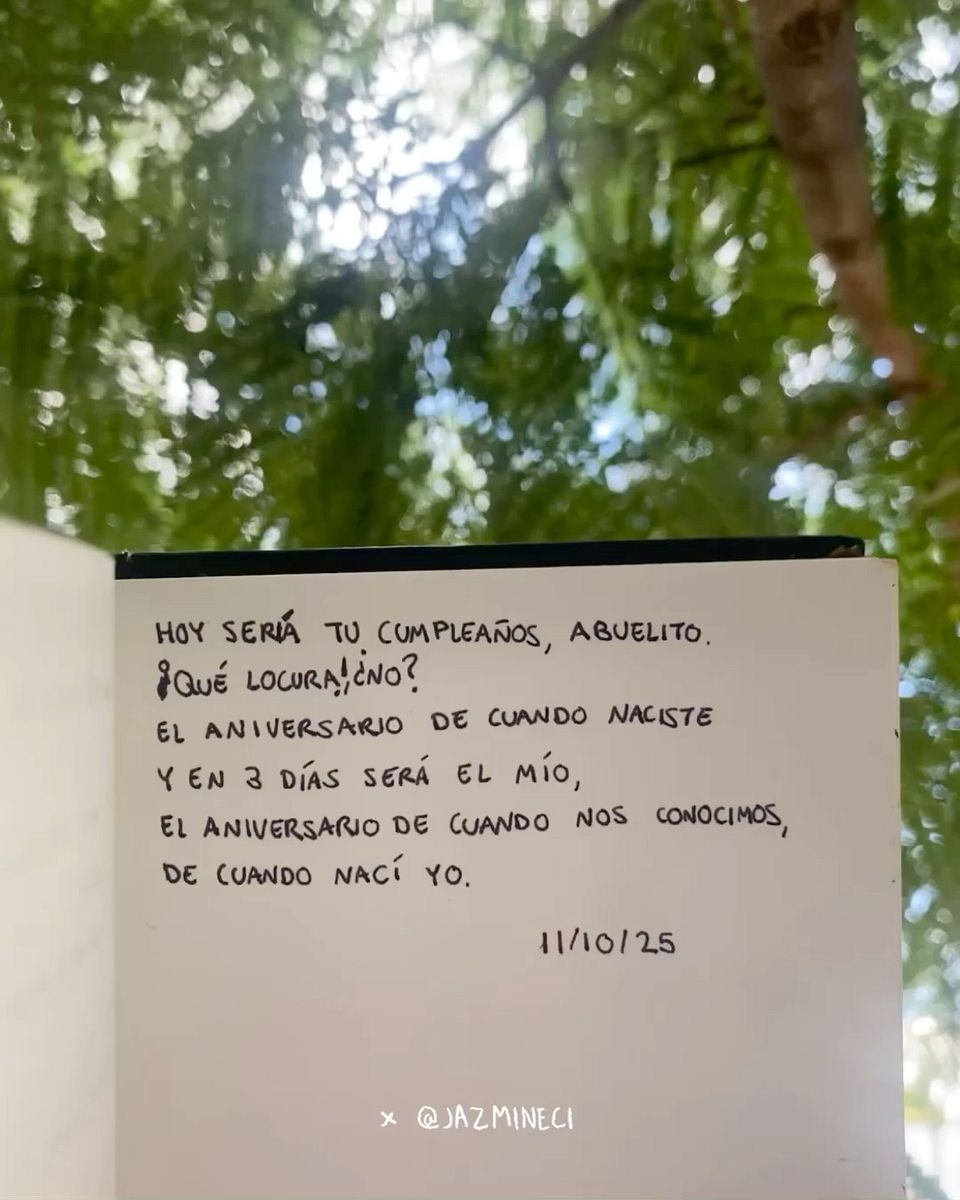 HOY SERÍA TU CUMPLEAÑOS, ABUELITO.
¡QUÉ LOCURA!, ¿NO?
EL ANIVERSARIO DE CUANDO NACISTE
Y EN 3 DÍAS SERÁ EL MÍO,
EL ANIVERSARIO DE CUANDO NOS CONOCIMOS,
DE CUANDO NACÍ YO.
11/10/25
x @JAZMINECI